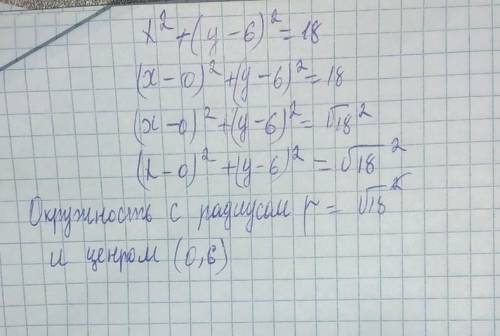 x² + (y – 6)² = 18
(x – 0)² + (y – 6)² = 18
(x – 0)² + (y – 6)² = √18²
(x – 0)² + (y – 6)² = √18²
Окружность с радиусом r = √18²
и ценром (0,6)